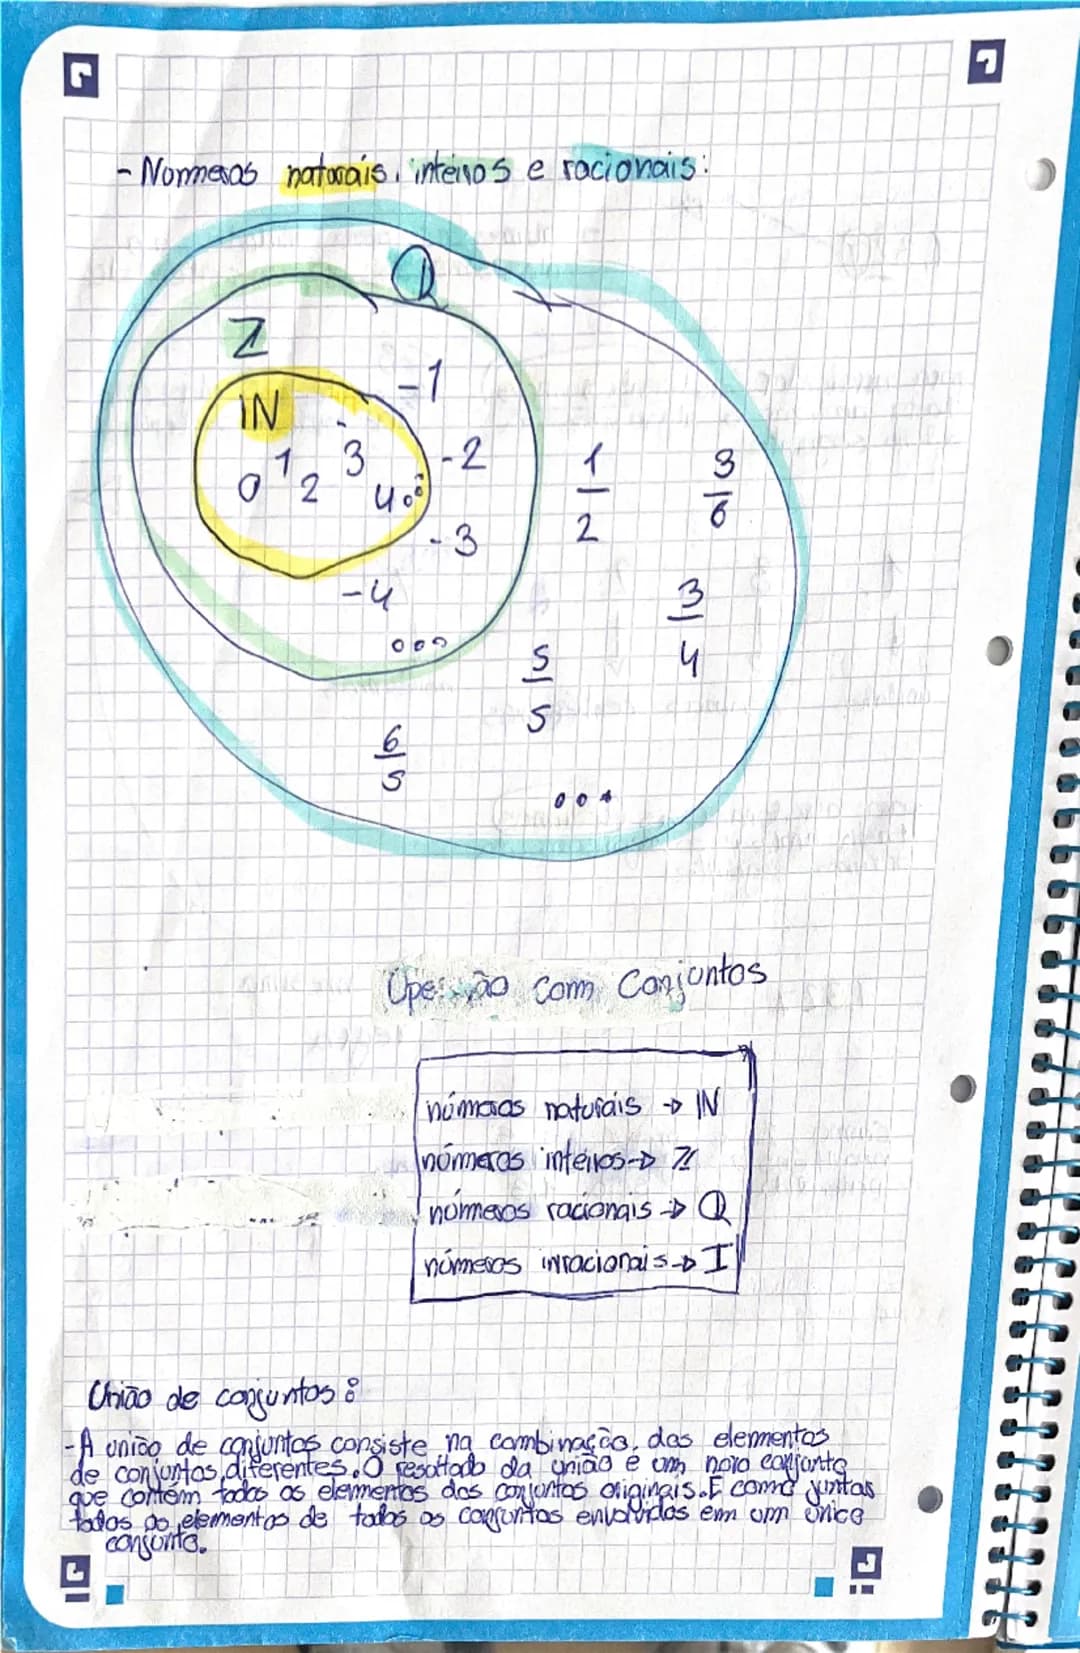 - Nomeros naturais, inteiros e racionais:
Q
Z
-1
IN
1 3 -2
0 2 4
-3
-4
1/2 3/6
3/4
5/5
6/5
Operação com Conjuntos
números naturais → IN
números inteiros → Z
números racionais → Q
números irracionais → I
União de conjuntos:
- A união de conjuntos consiste na combinação, dos elementos
de conjuntos diferentes. O resoltado da união e um novo conjunto
que contém todos os elementos dos conjuntos originais. E como juntas
todos os elementos de todos os conjuntos envolvidos em um único
conjunto.